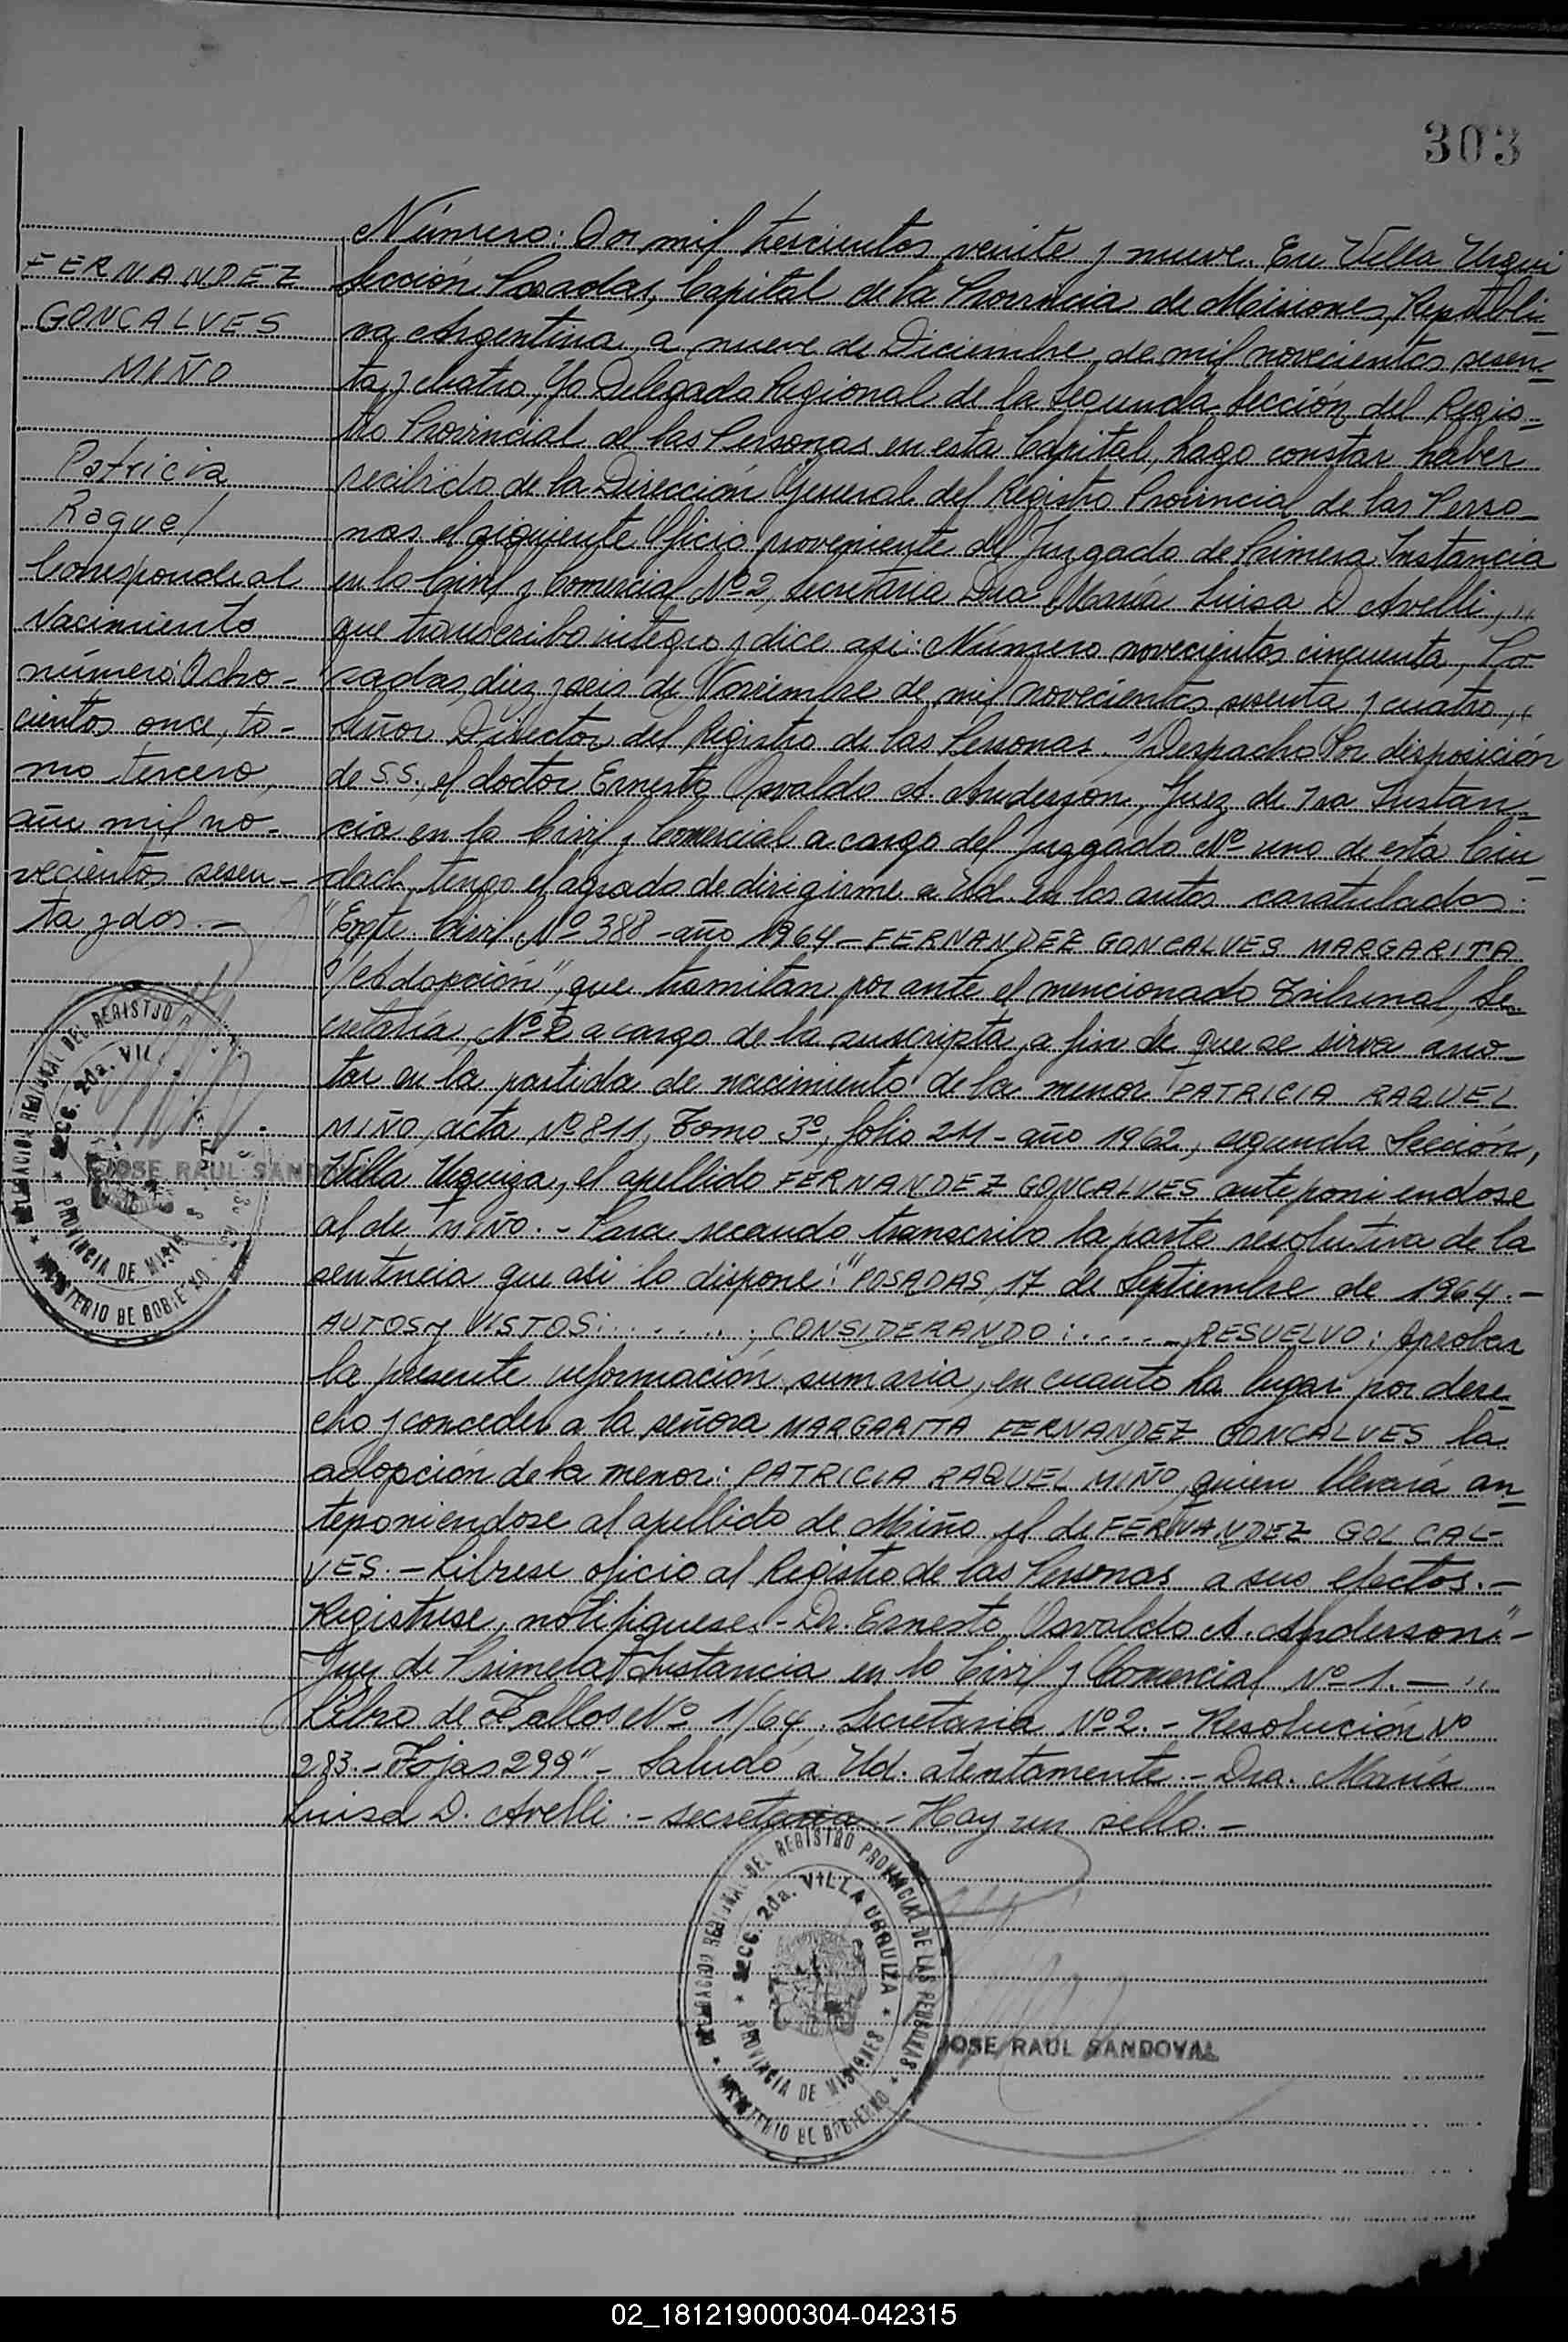 303
FERNANDEZ
GONCALVES
MIÑO
Patricia
Raquel
Corresponde al
Nacimiento
número: Ocho-
cientos once, to-
mo tercero,
año mil no-
vecientos sesen-
ta y dos.-
Número: Dos mil trescientos veinte y nueve. En Villa Urqui
Sección Posadas, Capital de la Provincia de Misiones, Repúbli-
ca Argentina, a nueve de Diciembre de mil novecientos sesen-
ta y cuatro, Yo Delegado Regional de la Segunda Sección del Regis-
tro Provincial de las Personas en esta Capital, hago constar haber
recibido de la Dirección General del Registro Provincial de las Perso-
nas el siguiente Oficio proveniente del Juzgado de Primera Instancia
en lo Civil y Comercial Nº 2, Secretaria Dra María Luisa D Avelli, "
que transcribo integro y dice asi: Número novecientos cincuenta, Po-
sadas, diez y seis de Noviembre de mil novecientos sesenta y cuatro, "
Señor Director del Registro de las Personas. S/Despacho Por disposición
de S.S., el doctor Ernesto Osvaldo A. Anderson, Juez de 1ra Instan-
cia en lo Civil y Comercial a cargo del Juzgado Nº uno de esta Ciu-
dad, tengo el agrado de dirigirme a Ud. en los autos caratulados:
"Expte. Civil Nº 388 - año 1964 - FERNANDEZ GONCALVES MARGARITA
S/Adopción", que tramitan por ante el mencionado Tribunal, Se-
cretaría, Nº 2 a cargo de la suscripta, a fin de que se sirva ano-
tar en la partida de nacimiento de la menor PATRICIA RAQUEL
MIÑO, acta Nº 811, Tomo 3º, folio 211 - año 1962, segunda Sección,
Villa Urquiza, el apellido FERNANDEZ GONCALVES anteponiendose
al de MIÑO. - Para recaudo transcribo la parte resolutiva de la
sentencia que asi lo dispone: "POSADAS, 17 de Septiembre de 1964. -
AUTOS y VISTOS: ......., CONSIDERANDO: ..... RESUELVO: Aprobar
la presente información sumaria, en cuanto ha lugar por dere-
cho y conceder a la señora MARGARITA FERNANDEZ GONCALVES la
adopción de la menor: PATRICIA RAQUEL MIÑO, quien llevará an-
teponiendose al apellido de Miño el de FERNANDEZ GOLCAL-
VES. - Librese oficio al Registro de las Personas a sus efectos. -
Registrese, notifiquese. - Dr. Ernesto Osvaldo A. Anderson." -
Juez de Primera Instancia en lo Civil y Comercial Nº 1. - "
Libro de Fallos Nº 1/64. Secretaría Nº 2. - Resolución Nº
283. - Fojas 299" - Saludo a Ud. atentamente. - Dra. María
Luisa D. Avelli. - secretaria - Hay un sello. -
DELEGACION REGIONAL DEL REGISTRO
SECC. 2da. VIL
PROVINCIA DE MISIO
MINISTERIO DE GOBIERNO
JOSE RAUL SANDO
DELEGACION REGIONAL DEL REGISTRO PROVINCIAL DE LAS PERSONAS
SECC. 2da. VILLA URQUIZA
PROVINCIA DE MISIONES
MINISTERIO DE GOBIERNO
JOSE RAUL SANDOVAL
02_181219000304-042315